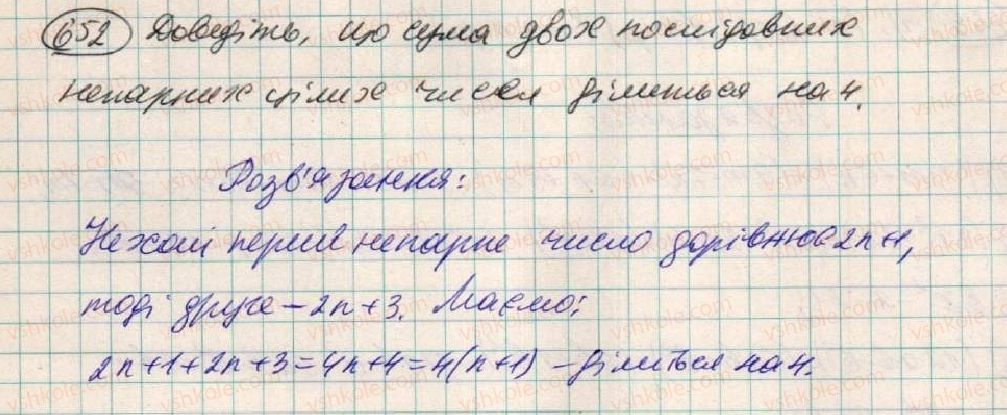 652 Доведіть, що сума двох послідовних
непарних цілих чисел ділиться на 4.
Розв'язання:
Нехай перше непарне число дорівнює 2n+1,
тоді друге – 2n+3. Маємо:
2n+1+2n+3=4n+4=4(n+1) – ділиться на 4.